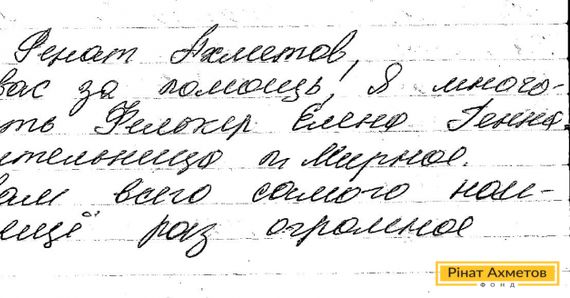 Ренат Ахметов,
вас за помощь! Я много-
ть Фелькер Елена Генна
ительница п. Мирное.
вам всего самого наи-
ещё раз огромное
Рінат Ахметов
ФОНД